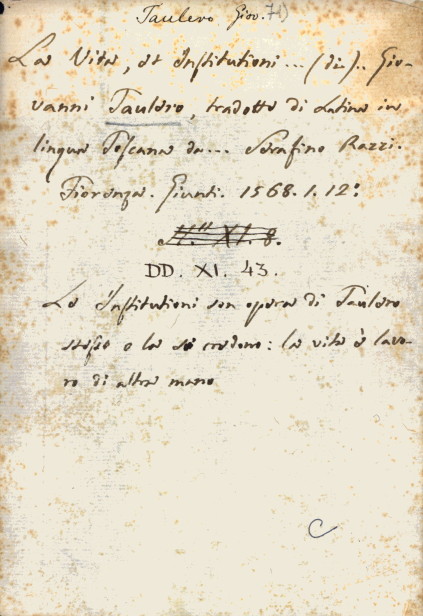 Taulero Giov. 71)
La Vita, et Institutioni ... (di) .. Gio-
vanni Taulero, tradotte di Latina in
lingua Toscana da ... Serafino Razzi.
Fiorenza. Giunti. 1568. 1. 12°
XI. 8.
DD. XI. 43.
Le Institutioni son opera di Taulero
stesso o la si credono: la vita è lavo-
ro di altra mano
C